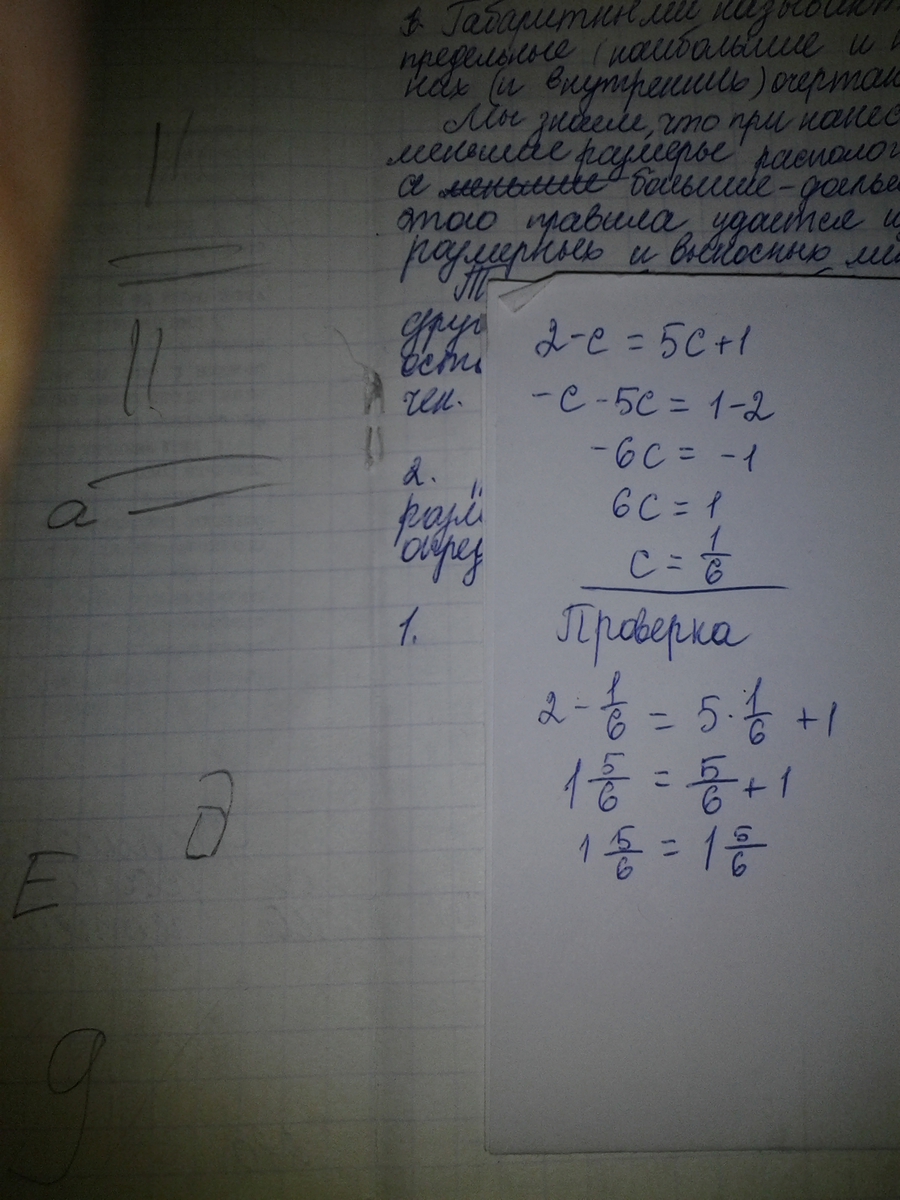 Габаритными называют
предельные (наибольшие и
(и внутренних) очертан
Мы знаем, что при нанес
меньшие размеры располог
а меньшие большие - дальш
этого правила удается
размерных и выносных
Т
друг
оста
чен.
2.
разм
опред
1.
2-c = 5c+1
-c-5c = 1-2
-6c = -1
6c = 1
c = 1/6
Проверка
2 - 1/6 = 5 · 1/6 + 1
1 5/6 = 5/6 + 1
1 5/6 = 1 5/6
а
д
Е
д